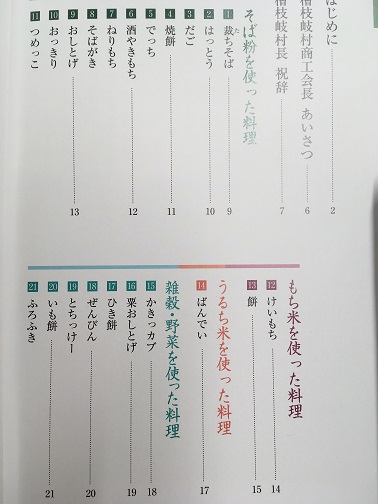 はじめに 2
檜枝岐村商工会長 あいさつ 6
檜枝岐村長 祝辞 7
そば粉を使った料理
1 裁ちそば 9
2 はっとう 10
3 だご
4 焼餅 11
5 でっち
6 酒やきもち 12
7 ねりもち
8 そばがき
9 おしとげ 13
10 おっきり
11 つめっこ
もち米を使った料理
12 けいもち 14
13 餅 15
うるち米を使った料理
14 ばんでい 17
雑穀・野菜を使った料理
15 かきっカブ 18
16 粟おしとげ 19
17 ひき餅
18 ぜんびん 20
19 とちっけー
20 いも餅 21
21 ふろふき